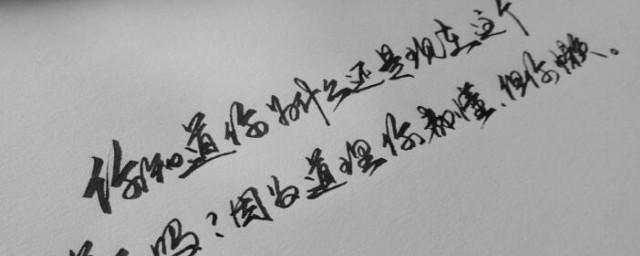 你知道你为什么还是现在这个
吗?因为道理你都懂,但你懒。